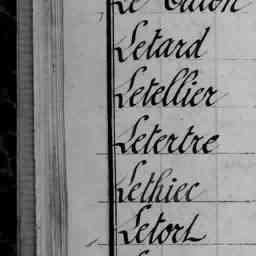 Le
Letard
Letellier
Letertre
Lethiec
Letort